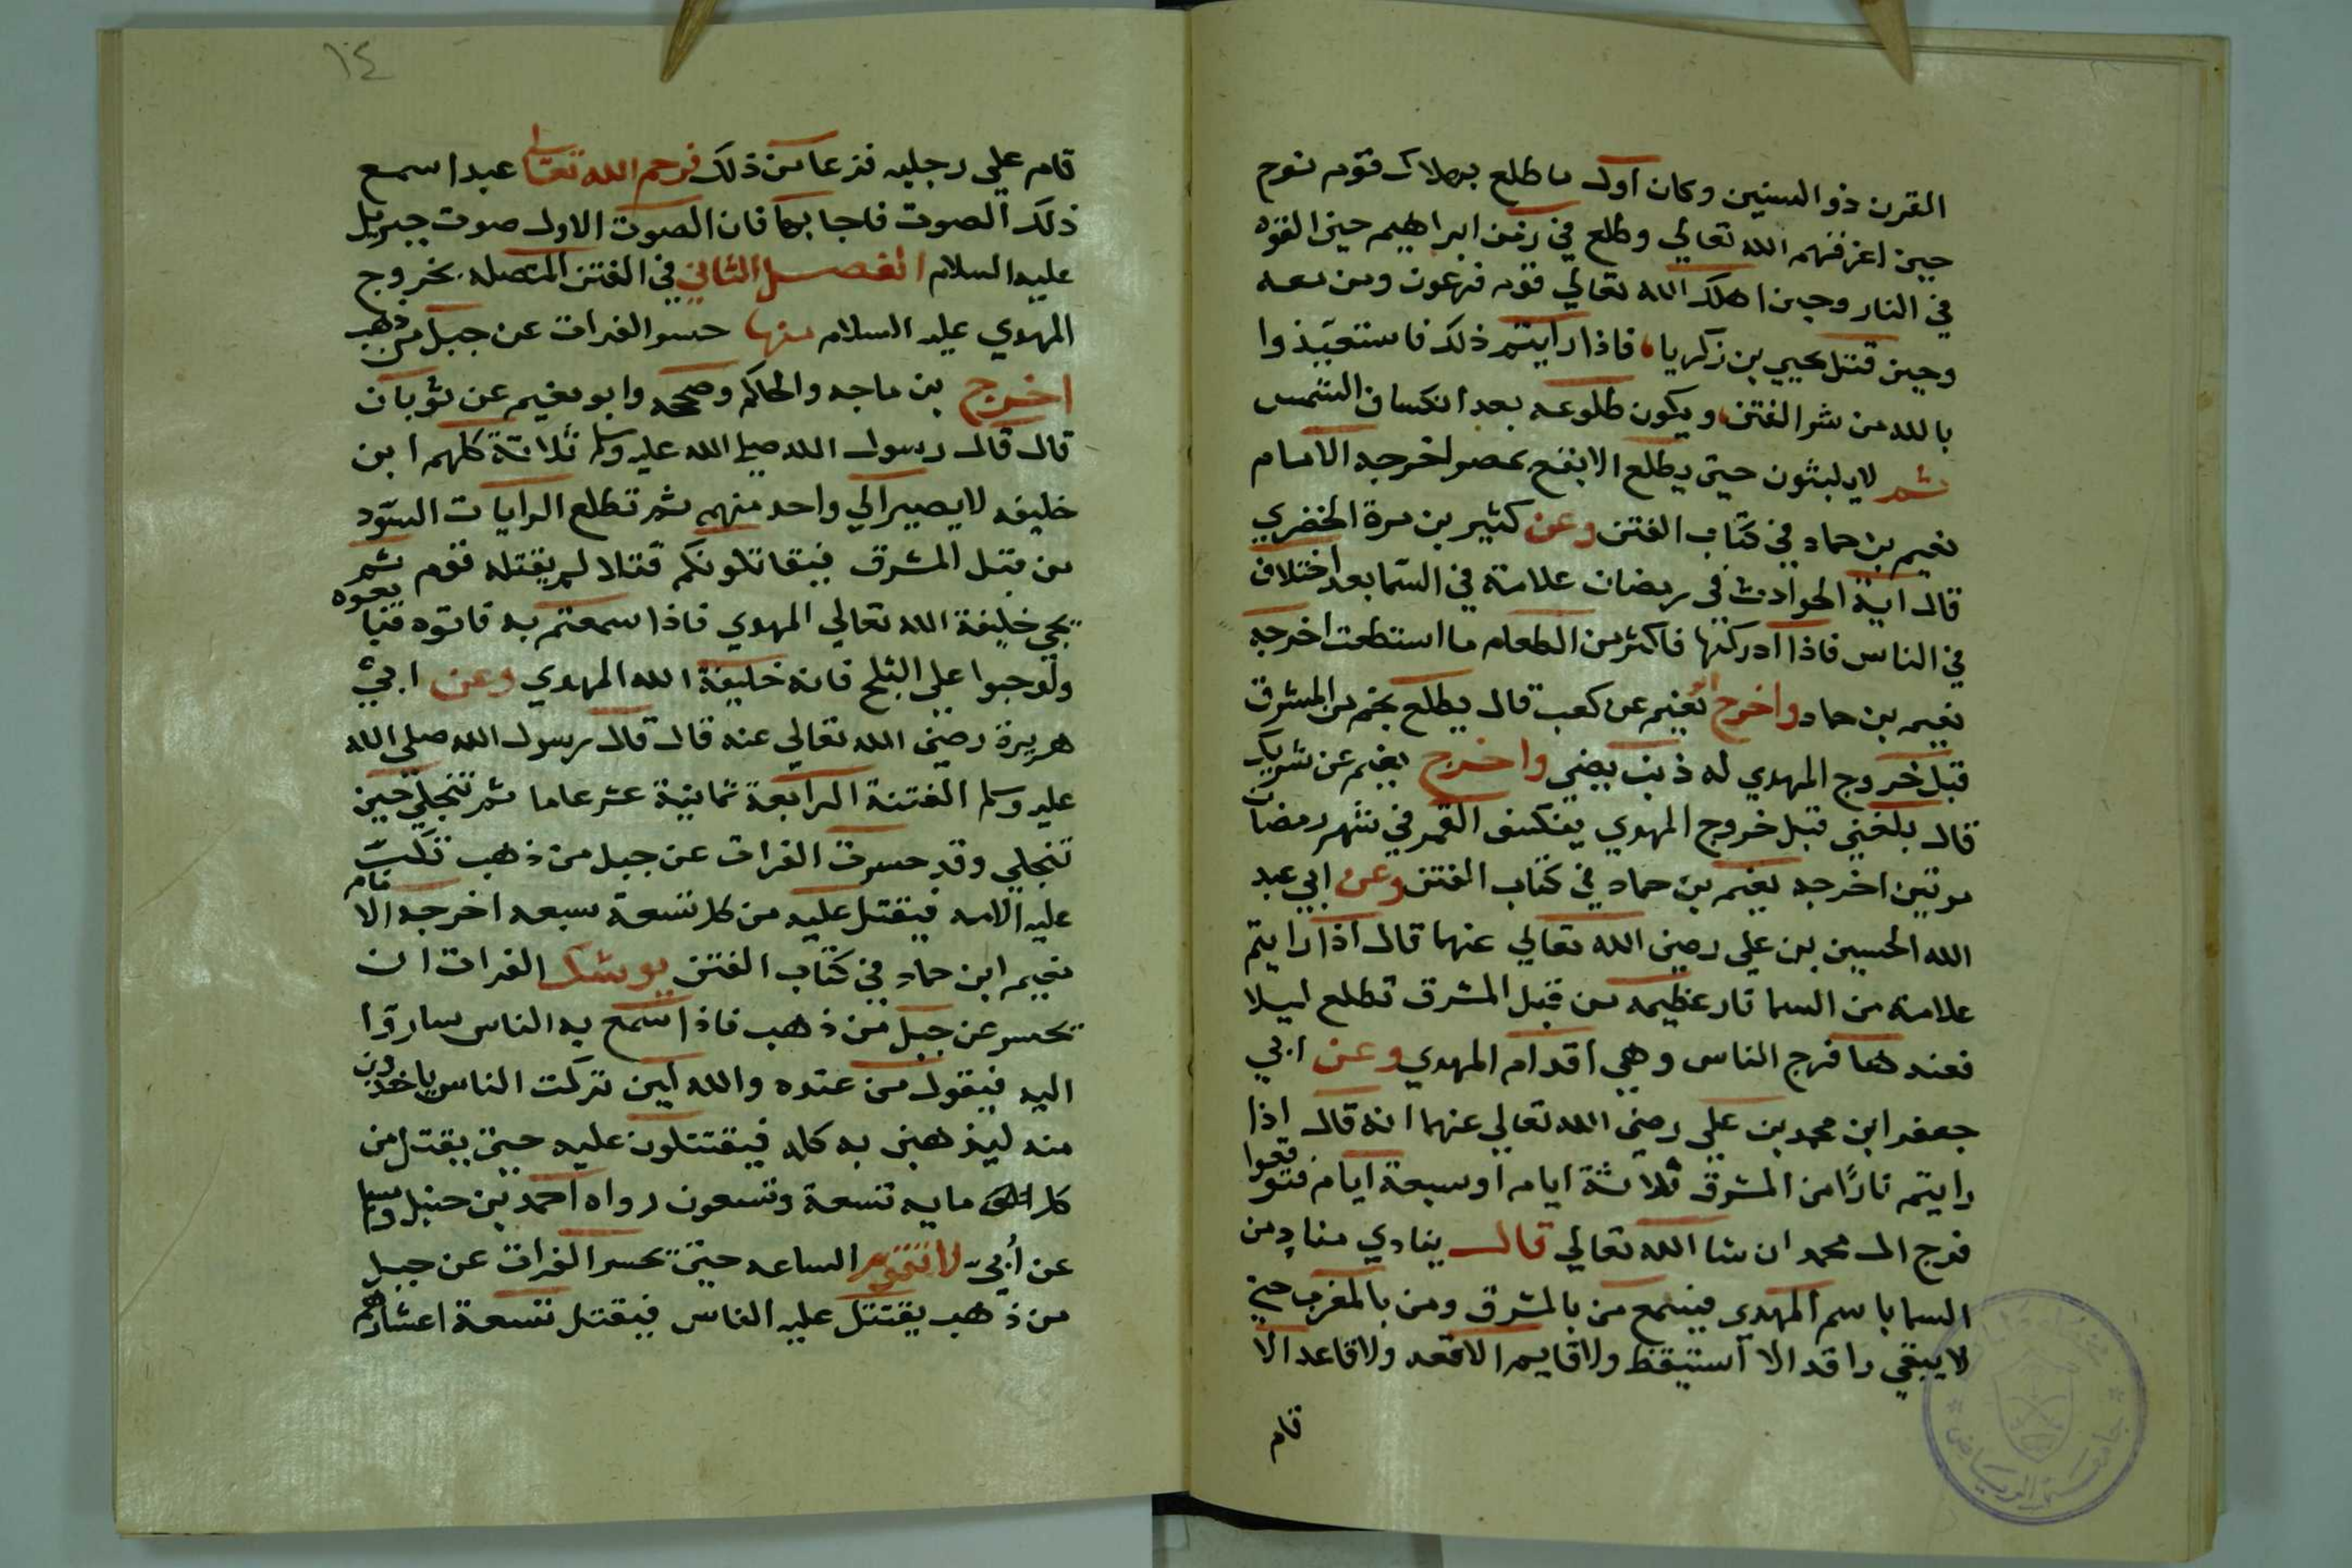 القرن ذو السنين وكان اول ما طلع بهلاك قوم نوح
حين اغرقهم الله تعالي وطلع في زمن ابراهيم حين القوه
في النار وحين اهلك الله تعالي قوم فرعون ومن معه
وحين قتل يحيي بن زكريا، فاذا رايتم ذلك فاستعيذوا
بالله من شر الفتن ويكون طلوعه بعد انكساف الشمس
ثم لا يلبثون حتي يطلع الابقع بمصر اخرجه الامام
نعيم بن حماد في كتاب الفتن وعن كثير بن مرة الخضري
قال اية الحوادث في رمضان علامة في السما بعد اختلاف
في الناس فاذا ادركتها فاكثر من الطعام ما استطعت اخرجه
نعيم بن حماد واخرج نعيم عن كعب قال يطلع نجم من المشرق
قبل خروج المهدي له ذنب يضي واخرج نعيم عن شريك
قال بلغني قبل خروج المهدي ينكسف القمر في شهر رمضان
مرتين اخرجه نعيم بن حماد في كتاب الفتن وعن ابي عبد
الله الحسين بن علي رضي الله تعالي عنهما قال اذا رايتم
علامة من السما نار عظيمه من قبل المشرق تطلع ليلا
فعندها فرج الناس وهي اقدام المهدي وعن ابي
جعفر ابن محمد بن علي رضي الله تعالي عنهما انه قال اذا
رايتم نارًا من المشرق ثلاثة ايام او سبعة ايام فتوقعوا
فرج ال محمد ان شا الله تعالي قال ينادي مناد من
السما باسم المهدي فيسمع من بالمشرق ومن بالمغرب حتي
لا يبقي راقد الا استيقظ ولا قايم الا قعد ولا قاعد الا
قام
١٤
قام علي رجليه فزعا من ذلك فرحم الله تعالي عبدا سمع
ذلك الصوت فاجاب فان الصوت الاول صوت جبريل
عليه السلام الفصل الثاني في الفتن المتصله بخروج
المهدي عليه السلام منها حسر الفرات عن جبل من ذهب
اخرج بن ماجه والحاكم وصححه وابو نعيم عن ثوبان
قال قال رسول الله صلي الله عليه وسلم ثلاثة كلهم ابن
خليفه لا يصير الي واحد منهم ثم تطلع الرايات السود
من قبل المشرق فيقاتلونكم قتلا لم يقتله قوم ثم
يجي خليفة الله تعالي المهدي فاذا سمعتم به فاتوه فبايعوه
ولو حبوا علي الثلج فانه خليفة الله المهدي وعن ابي
هريرة رضي الله تعالي عنه قال قال رسول الله صلي الله
عليه وسلم الفتنة الرابعة ثمانية عشر عاما ثم تنجلي حين
تنجلي وقد حسرت الفرات عن جبل من ذهب تكب
عليه الامه فيقتل عليه من كل تسعة سبعه اخرجه الامام
نعيم ابن حماد في كتاب الفتن يوشك الفرات ان
يحسر عن جبل من ذهب فاذا سمع به الناس ساروا
اليه فيقول من عنده والله لين تركت الناس ياخذون
منه ليذهبن به كله فيقتتلون عليه حتي يقتل من
كل مايه تسعة وتسعون رواه احمد بن حنبل ومسلم
عن أبيّ لا تقوم الساعه حتي تحسر الفرات عن جبل
من ذهب يقتتل عليه الناس فيقتل تسعة اعشارهم